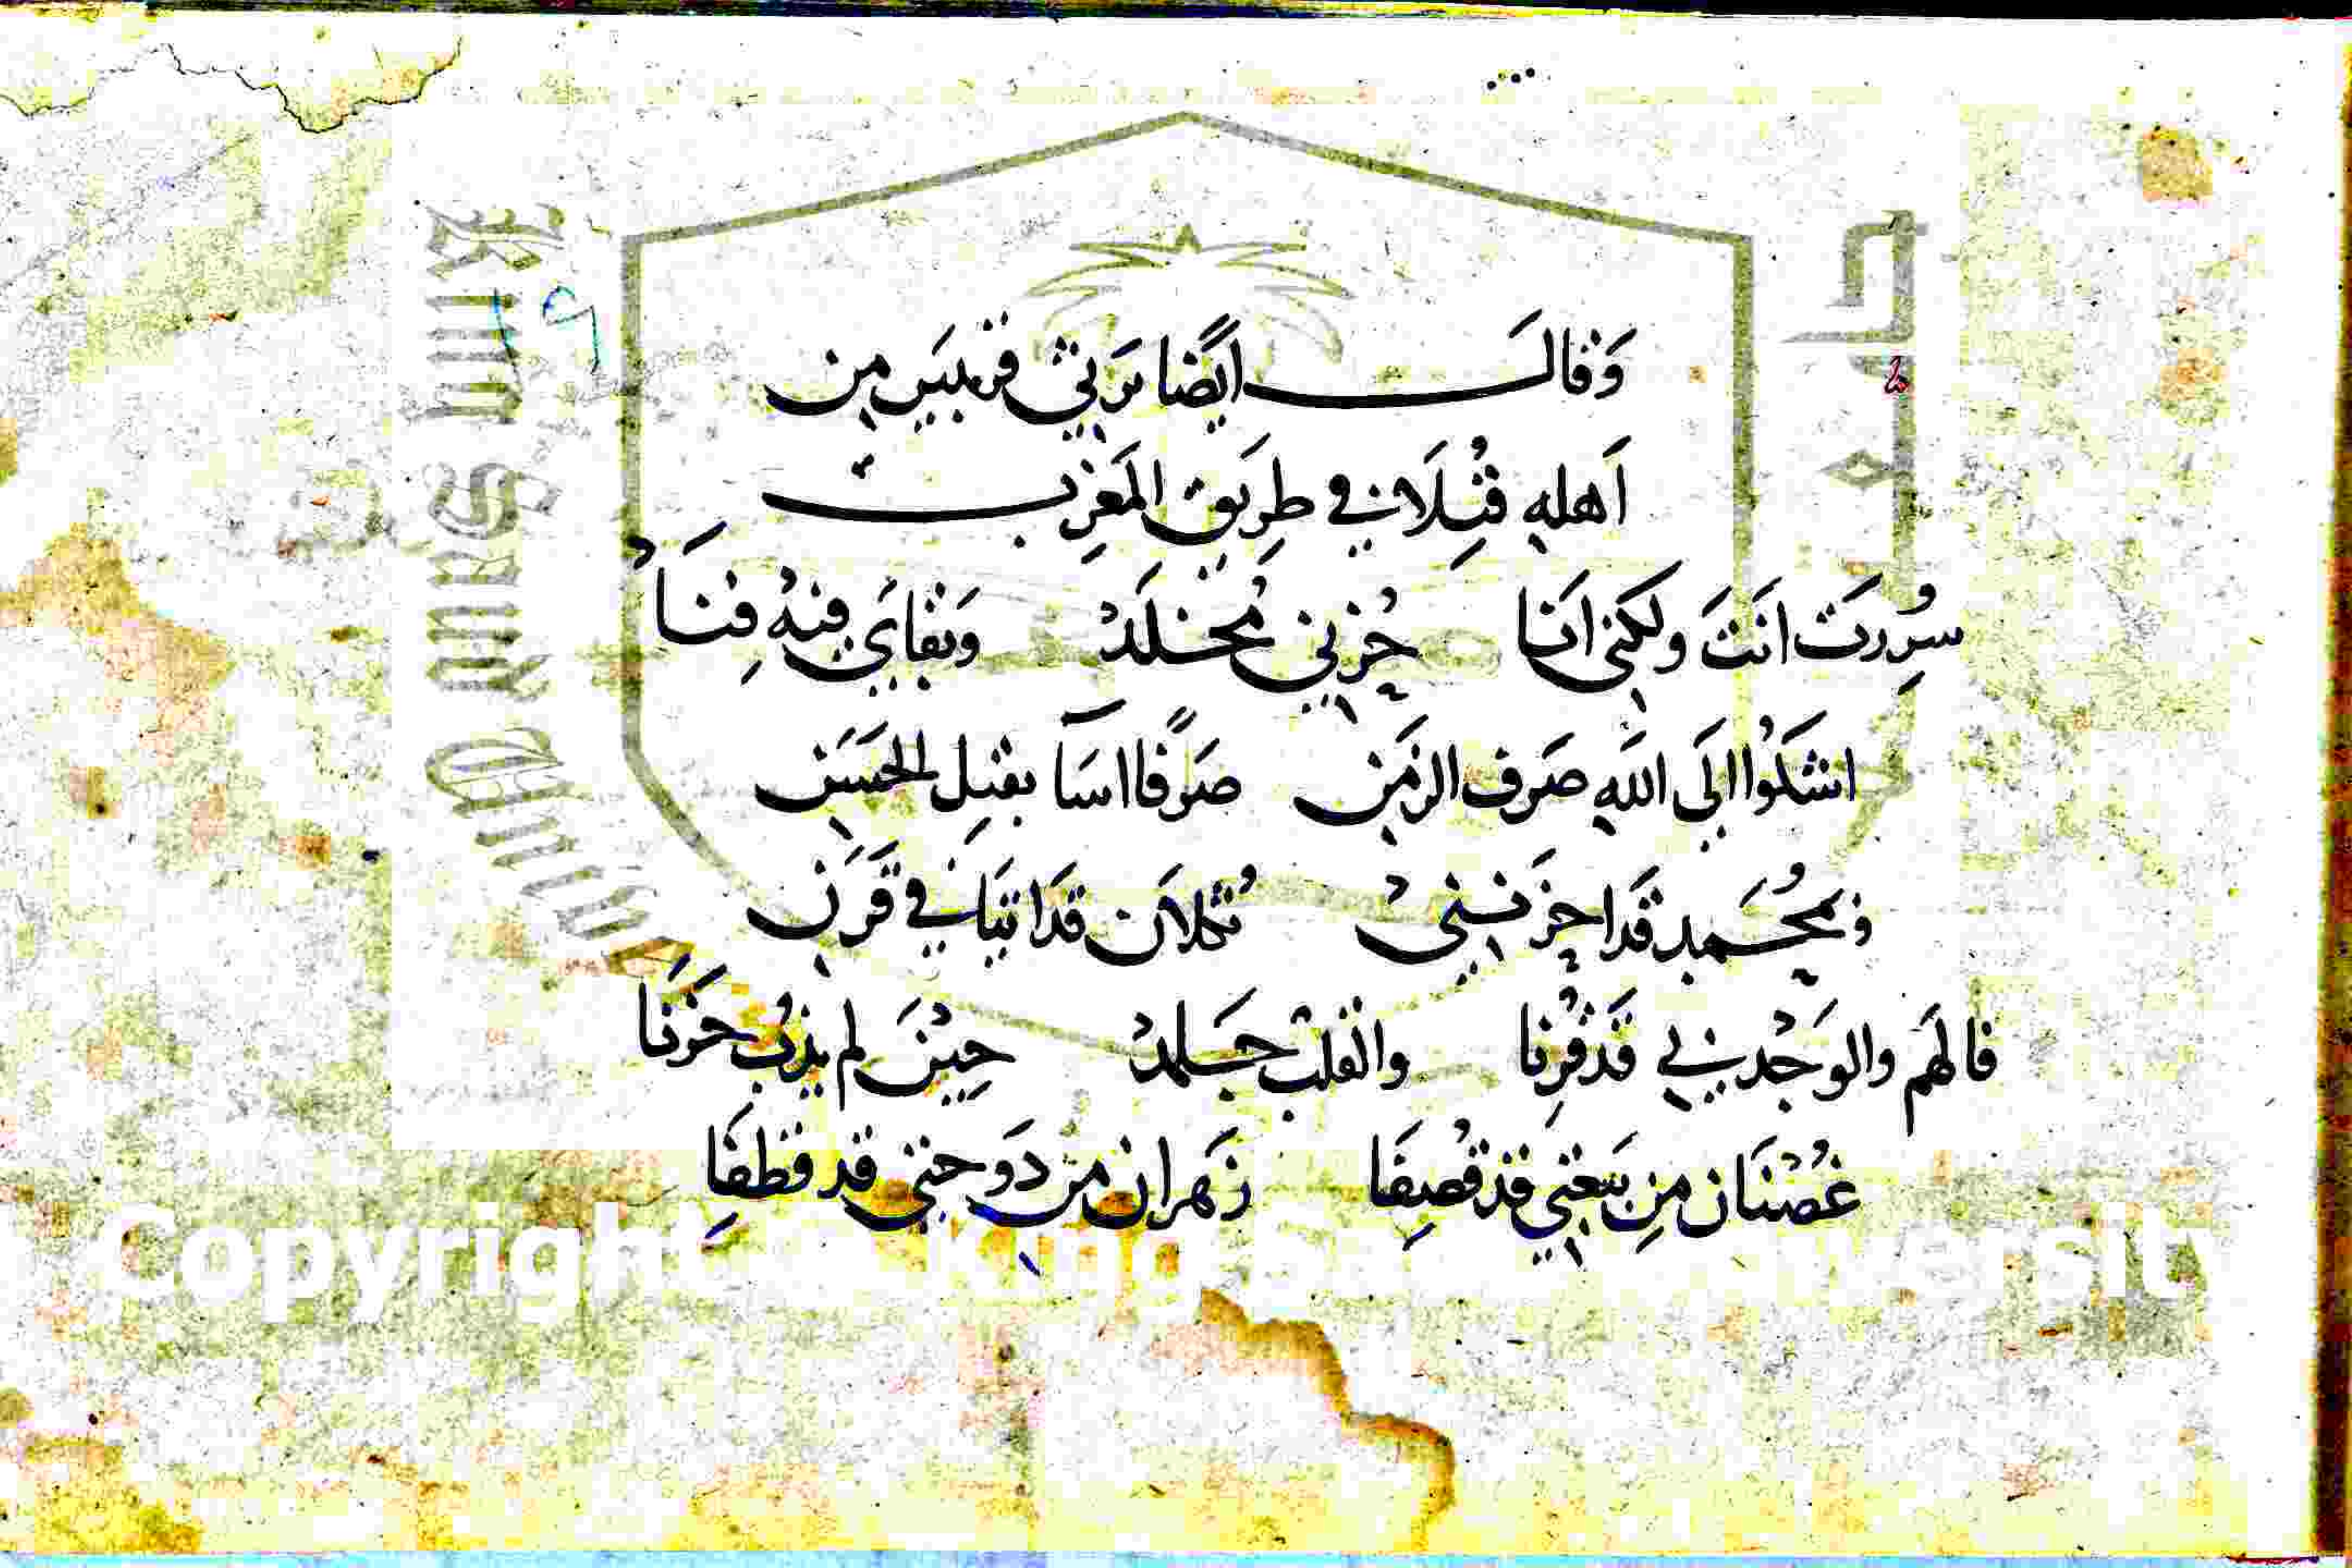 وَقَالَ ايًضا يَرثي قريبَين مِن
اَهلهِ قُتِلَا في طِرِيق المَغرِب
سُرِرتَ انتَ ولكني انَا حُزني مُخلَدْ وَبقاي فيهُ فِنَا
اشكوا الَى اللهِ صَرف الزمَن صَرًفا اسَآ بقتِل الحَسَن
وبمحُمد قَدا حزَنني ثُكلاَن قَدَاتيَا في قَرَن
فالهَم والوَجْد بي قَدقُرِنا والقلب جَلمدْ حِيْنَ لم يذُب حَزَنَا
غُصْنَان مِن نبعَتي قد قُصِفَا زَهران من دَوحتي قد قطِفَا
King Saud
Copyright King